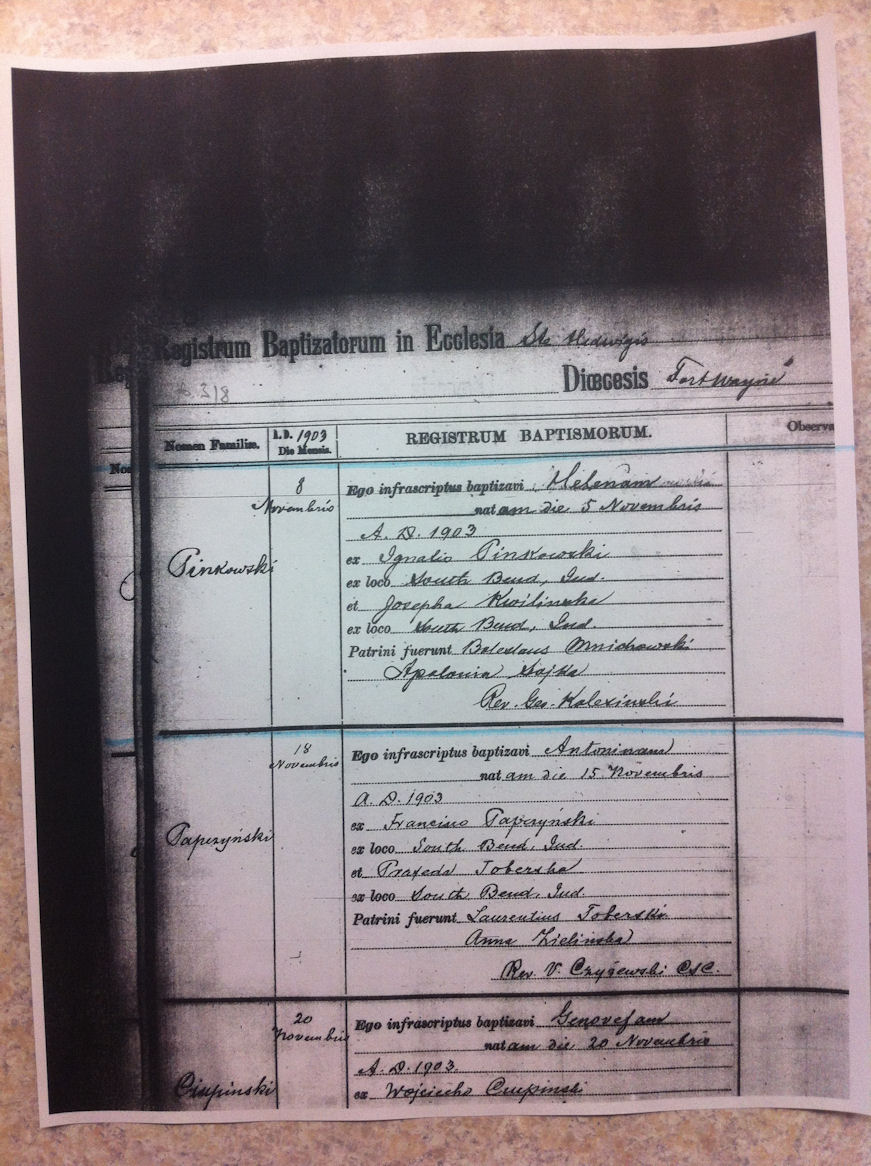 Registrum Baptizatorum in Ecclesia Sta Hedwigis
Diœcesis Fort Wayne
Nomen Familiæ.
A.D. 1903
Die Mensis.
REGISTRUM BAPTISMORUM.
Observa
8
Novembris
Pinkowski
Ego infrascriptus baptizavi Helenam
natam die 5 Novembris
A. D. 1903
ex Ignatio Pinkowski
ex loco South Bend, Ind.
et Josepha Kwilinska
ex loco South Bend, Ind.
Patrini fuerunt Boleslaus Mnichowski
Apolonia Sojka
Rev. Geo. Kalexinski
18
Novembris
Paperzyński
Ego infrascriptus baptizavi Antoninam
natam die 15 Novembris
A. D. 1903
ex Francisco Paperzyński
ex loco South Bend, Ind.
et Praxeda Toberska
ex loco South Bend, Ind.
Patrini fuerunt Laurentius Toberski
Anna Zielinska
Rev. V. Czyżewski CSC.
20
Novembris
Ciupinski
Ego infrascriptus baptizavi Genovefam
natam die 20 Novembris
A. D. 1903
ex Wojciecho Ciupinski